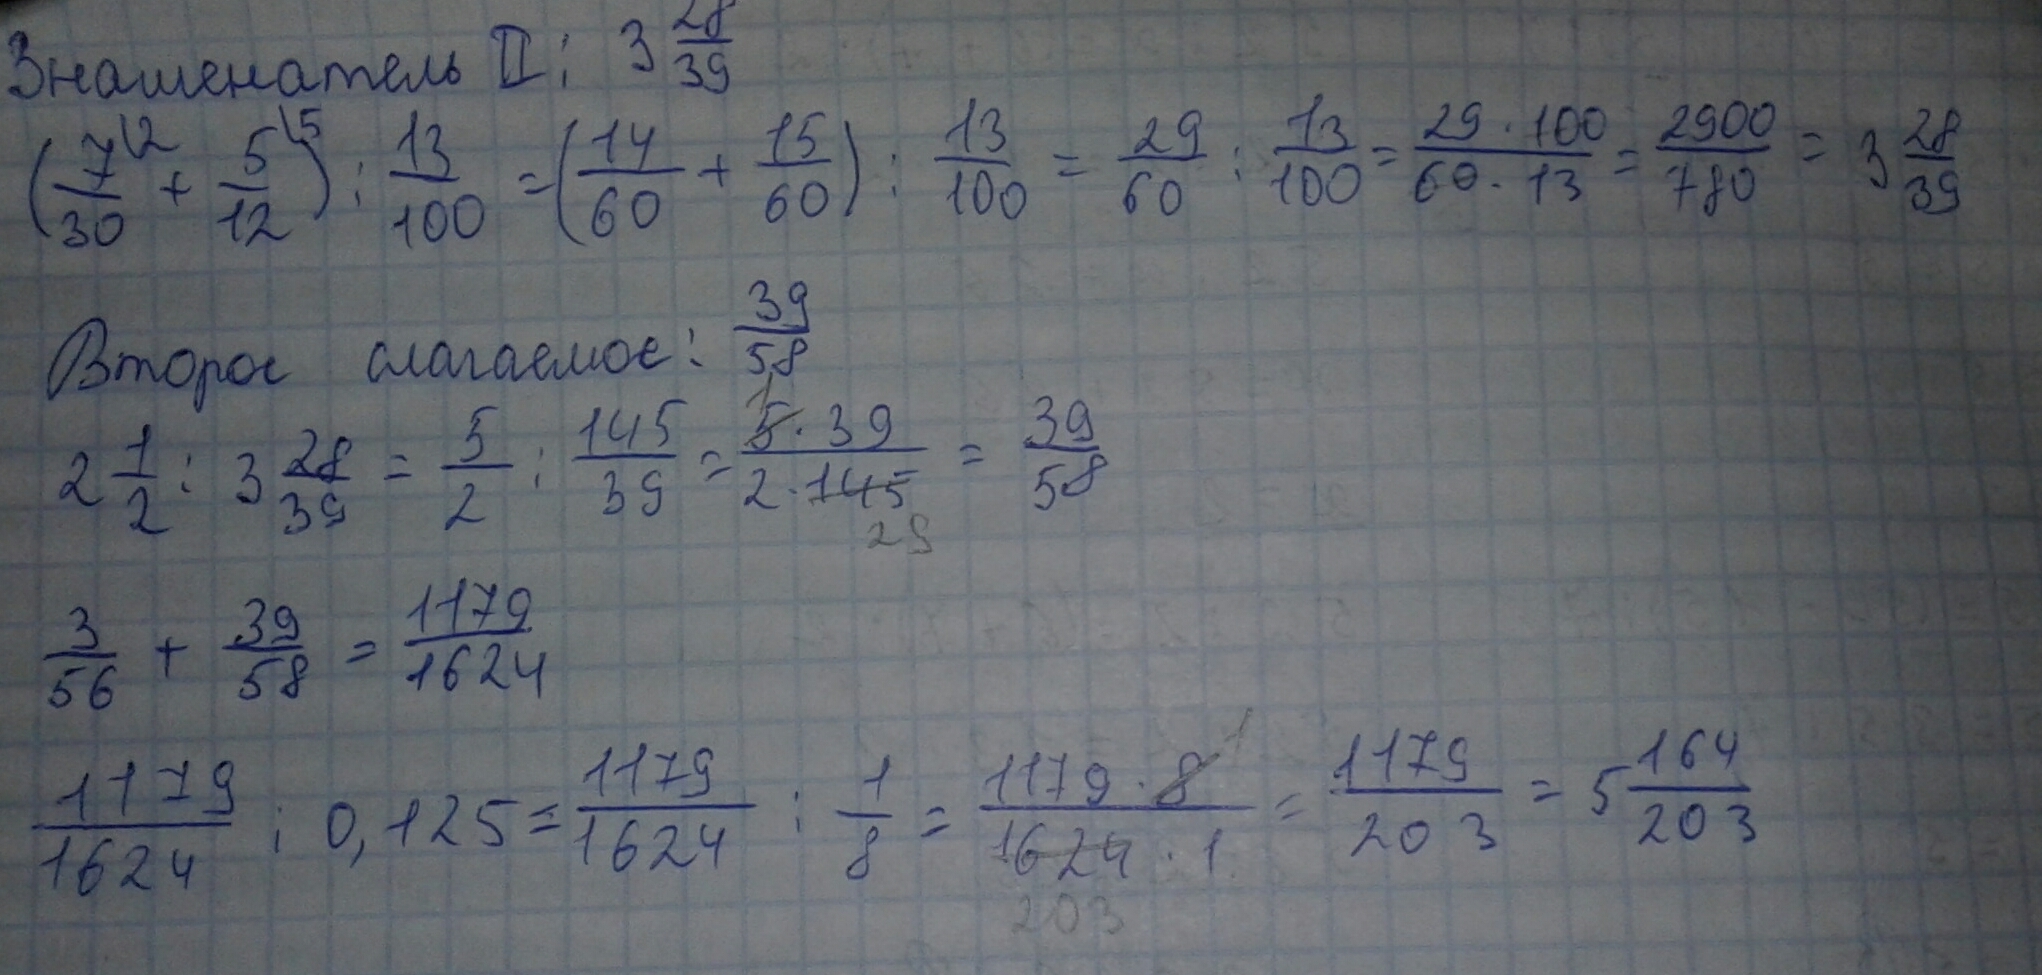 Знаменатель II: 3 28/39
(7\2/30 + 5\5/12) : 13/100 = (14/60 + 15/60) : 13/100 = 29/60 : 13/100 = 29·100/60·13 = 2900/780 = 3 28/39
Второе слагаемое: 39/58
2 1/2 : 3 28/39 = 5/2 : 145/39 = 5·39/2·145 = 39/58
1
29
3/56 + 39/58 = 1179/1624
1179/1624 : 0,125 = 1179/1624 : 1/8 = 1179·8/1624·1 = 1179/203 = 5 164/203
1
203